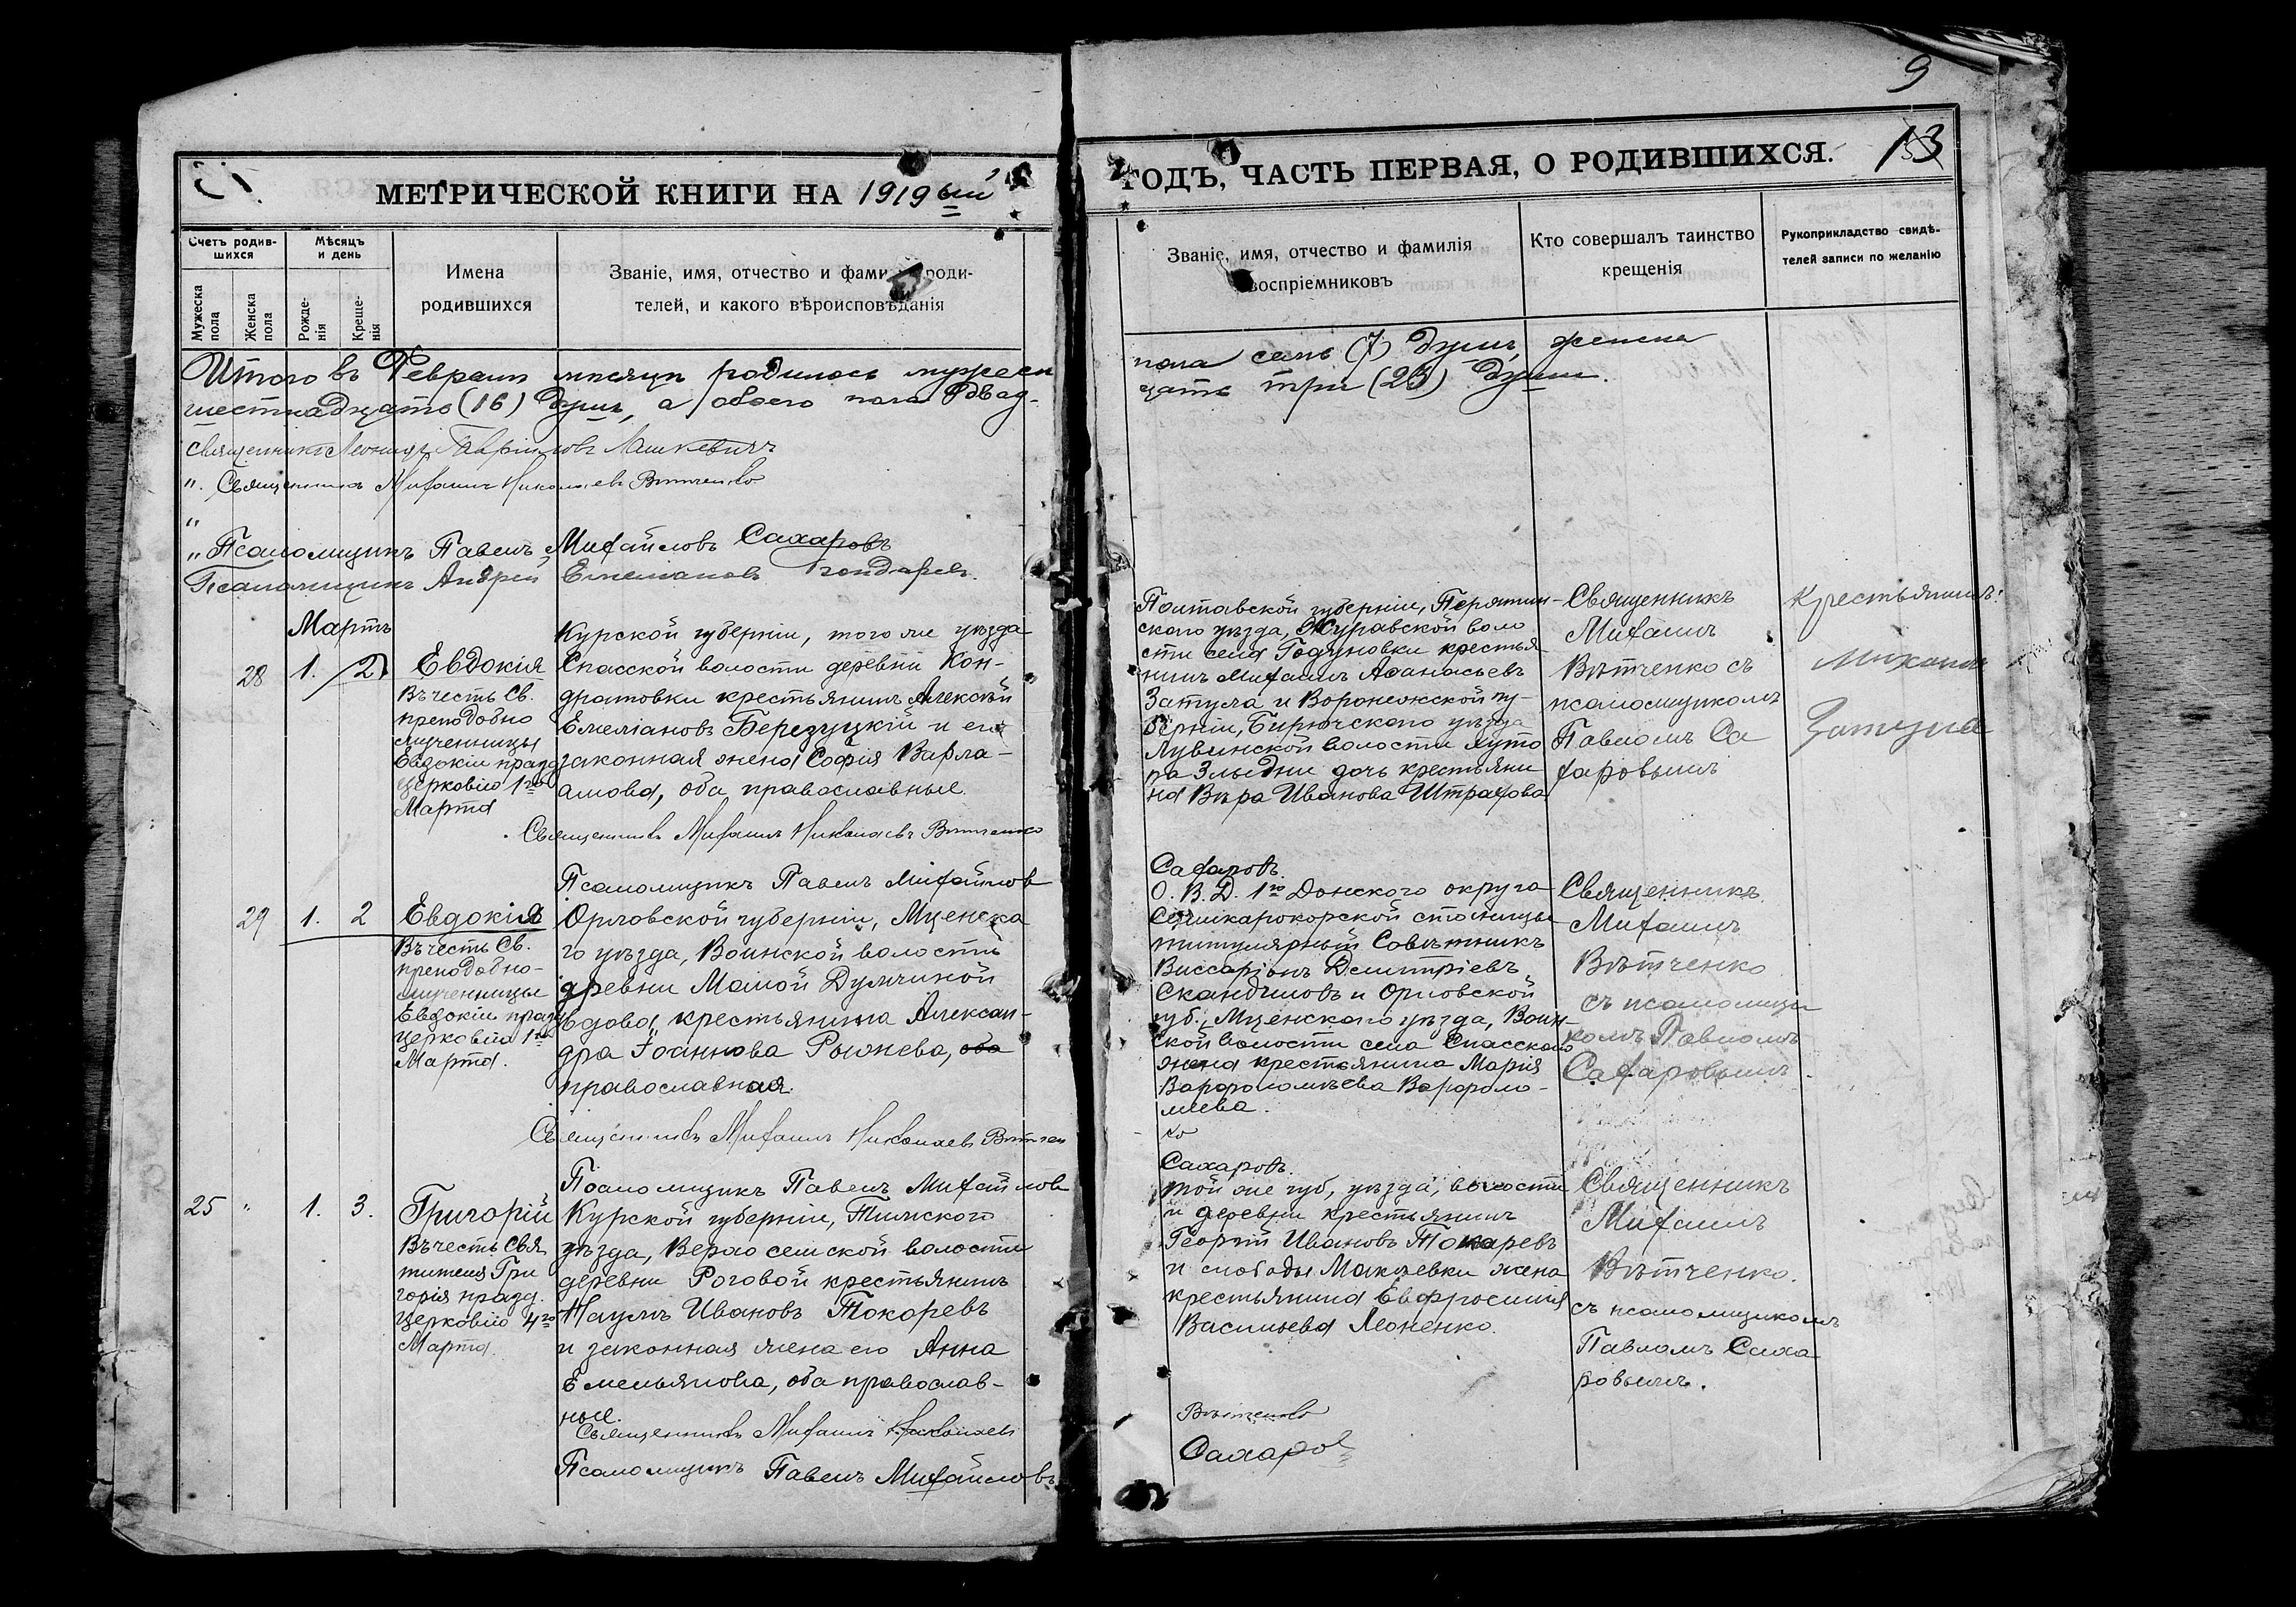 9
13
МЕТРИЧЕСКОЙ КНИГИ НА 1919ый
ГОДЪ, ЧАСТЬ ПЕРВАЯ, О РОДИВШИХСЯ.
Счетъ родив-
шихся
Мужеска пола
Женска пола
Мѣсяцъ
и день
Рожде-
нія
Креще-
нія
Имена
родившихся
Званіе, имя, отчество и фами роди-
телей, и какого вѣроисповѣданія
Званіе, имя, отчество и фамилія
воспріемниковъ
Кто совершалъ таинство
крещенія
Рукоприкладство свидѣ-
телей записи по желанію
Итого въ Февралѣ мѣсяцѣ родилось мужеск
пола семь (7) душъ, женска
шестнадцать (16) душъ, а обоего пола двад-
цать три (23) души.
Священникъ Леонидъ Гавріиловъ Лашкевичъ
". Священникъ Михаилъ Николаевъ Вѣтченко
"
" Псаломщикъ Павелъ Михайловъ Сахаровъ
Псаломщикъ Андрей Емеліановъ Бондарев.
Мартъ
28 1. 2
Евдокія
Въ честь Св.
преподобно
мученницы
Евдокіи празд
церковію 1го
Марта
Курской губерніи, того же уѣзда
Спасской волости деревни Кон-
дратовки крестьянинъ Алексѣй
Емеліановъ Березуцкій и его
законная жена София Варла-
амова, оба православные.
Священникъ Михаилъ Николаевъ Вѣтченко
Псаломщикъ Павелъ Михайлов
Полтавской губерніи, Пирятин-
скаго уѣзда, Журавской воло
сти села Годуновки крестья
нинъ Михаилъ Аѳанасьевъ
Затула и Воронежской гу-
берніи, Бирючскаго уѣзда
волости хуто
ра дочь крестьяни
на Вѣра Иванова Штрахова
Сахаровъ.
Священникъ
Михаилъ
Вѣтченко съ
псаломщикомъ
Павломъ Са
харовымъ
Крестьянинъ
Михаилъ
Затула
29 1. 2
Евдокія
Въ честь Св.
преподобно-
мученницы
Евдокіи празд
церковію 1го
Марта.
Орловской губерніи, Мценска
го уѣзда, Воинской волости
деревни Малой Думчиной
вдова крестьянина Алексан-
дра Іоаннова Рыжева, оба
православная.
Священникъ Михаилъ Николаевъ Вѣтчен
Псаломщикъ Павелъ Михайлов
О. В. Д. 1го Донского округа
станицы
титулярный Совѣтникъ
Виссаріонъ Димитріевъ
Скандиловъ и Орловской
губ., Мценскаго уѣзда, Воин-
ской волости села Спасскаго
жена крестьянина Марія
Варфоломѣева Варфоло-
меева.
ко
Сахаровъ.
Священникъ
Михаилъ
Вѣтченко
съ псаломщи
комъ Павломъ
Сахаровымъ.
25 " 1. 3.
Григорій
Въ честь Свя
тителя Гри
горія празд.
церковію 4го
Марта.
Курской губерніи, Тимскаго
уѣзда, Верхосемской волости
деревни Роговой крестьянинъ
Наумъ Ивановъ Токоревъ
и законная жена его Анна
Емельянова, оба православ-
ные.
Священникъ Михаилъ Николаевъ
Псаломщикъ Павелъ Михайловъ
той же губ, уѣзда, волости
и деревни крестьянинъ
Георгій Ивановъ Токаревъ
и слободы Макѣевки жена
крестьянина Евфросинія
Васильева Леоненко.
Вѣтченко
Сахаров
Священникъ
Михаилъ
Вѣтченко.
съ псаломщикомъ
Павломъ Саха-
ровымъ.